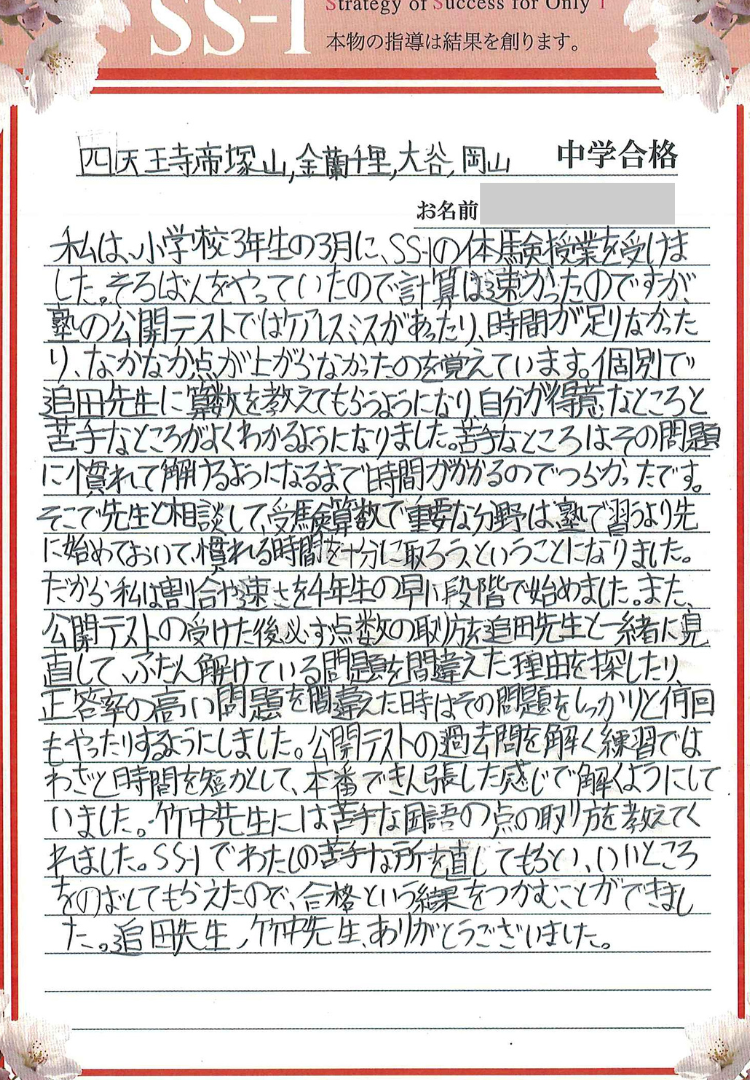 SS-1
Strategy of Success for Only 1
本物の指導は結果を創ります。
四天王寺帝塚山,金蘭千里,大谷,岡山 中学合格
お名前
私は、小学校3年生の3月に、SS-1の体験授業を受けま
した。そろばんをやっていたので計算は速かったのですが、
塾の公開テストではケアレスミスがあったり、時間が足りなかった
り、なかなか点が上がらなかったのを覚えています。個別で
追田先生に算数を教えてもらうようになり、自分が得意なところと
苦手なところがよくわかるようになりました。苦手なところはその問題
に慣れて解けるようになるまで時間がかかるのでつらかったです。
そこで先生と相談して、受験算数で重要な分野は、塾で習うより先
に始めておいて、慣れる時間を十分に取ろう、ということになりました。
だから私は割合や速さを4年生の早い段階で始めました。また、
公開テストの受けた後、必ず点数の取り方を追田先生と一緒に見
直して、ふだん解けている問題を間違えた理由を探したり、
正答率の高い問題を間違えた時はその問題をしっかりと何回
もやったりするようにしました。公開テストの過去問を解く練習では
わざと時間を短かくして、本番できん張した感じで解くようにして
いました。竹中先生には苦手な国語の点の取り方を教えてく
れました。SS-1でわたしの苦手な所を直してもらい、いいところ
をのばしてもらえたので、合格という結果をつかむことができまし
た。追田先生、竹中先生、ありがとうございました。